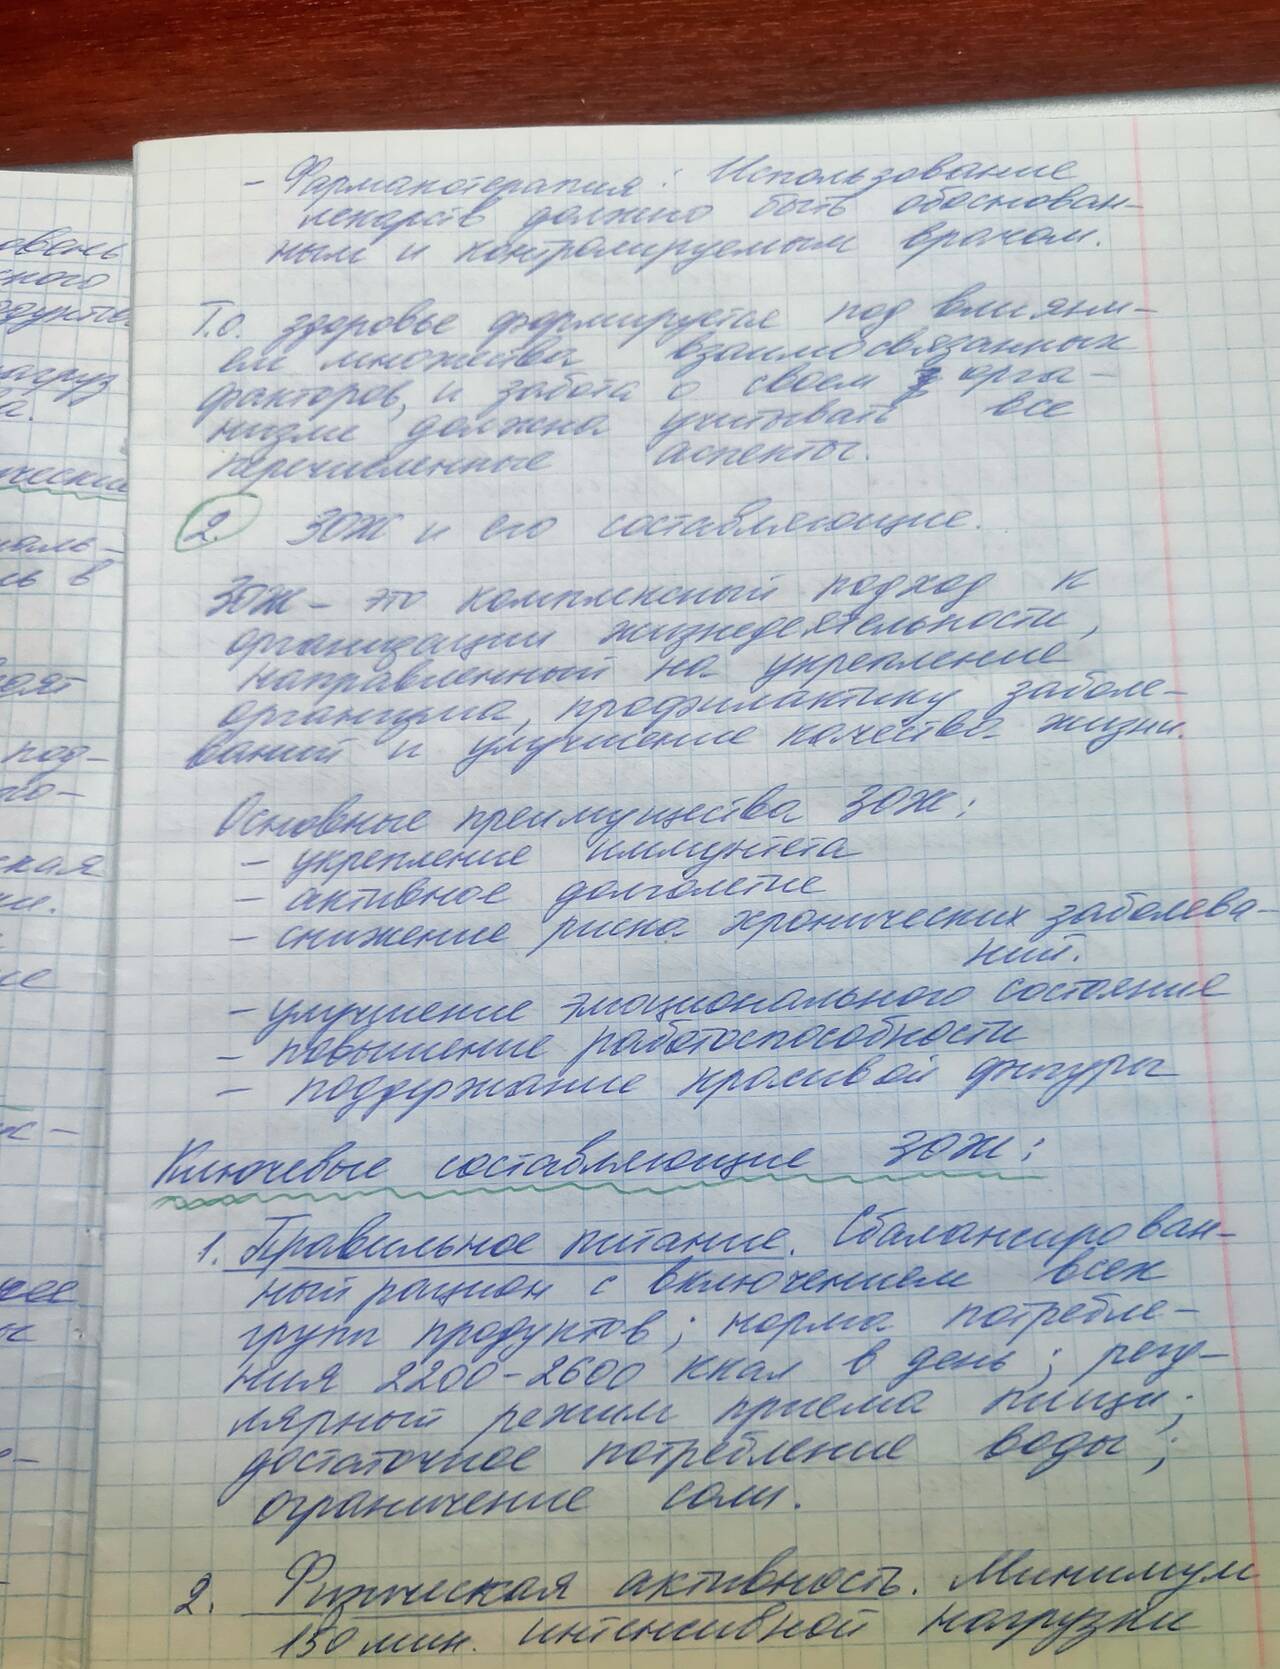 - Фармакотерапия: Использование
лекарств должно быть обоснован-
ным и контролируемым врачом.
Т.о. здоровье формируется под влияни-
ем множества взаимосвязанных
факторов, и забота о своем орга-
низме должна учитывать все
перечисленные аспекты.
2. ЗОЖ и его составляющие.
ЗОЖ - это комплексный подход к
организации жизнедеятельности,
направленный на укрепление
организма, профилактику заболе-
ваний и улучшение качества жизни.
Основные преимущества ЗОЖ:
- укрепление иммунтета
- активное долголетие
- снижение риска хронических заболева-
ний.
- улучшение эмоционального состояние
- повышение работоспособности
- поддержание красивой фигуры
Ключевые составляющие ЗОЖ:
1. Правильное питание. Сбалансирован-
ный рацион с включением всех
групп продуктов; норма потребле-
ния 2200-2600 ккал в день; регу-
лярный режим приема пищи;
достаточное потребление воды;
ограничение соли.
2. Физическая активность. Минимум
150 мин. интенсивной нагрузки